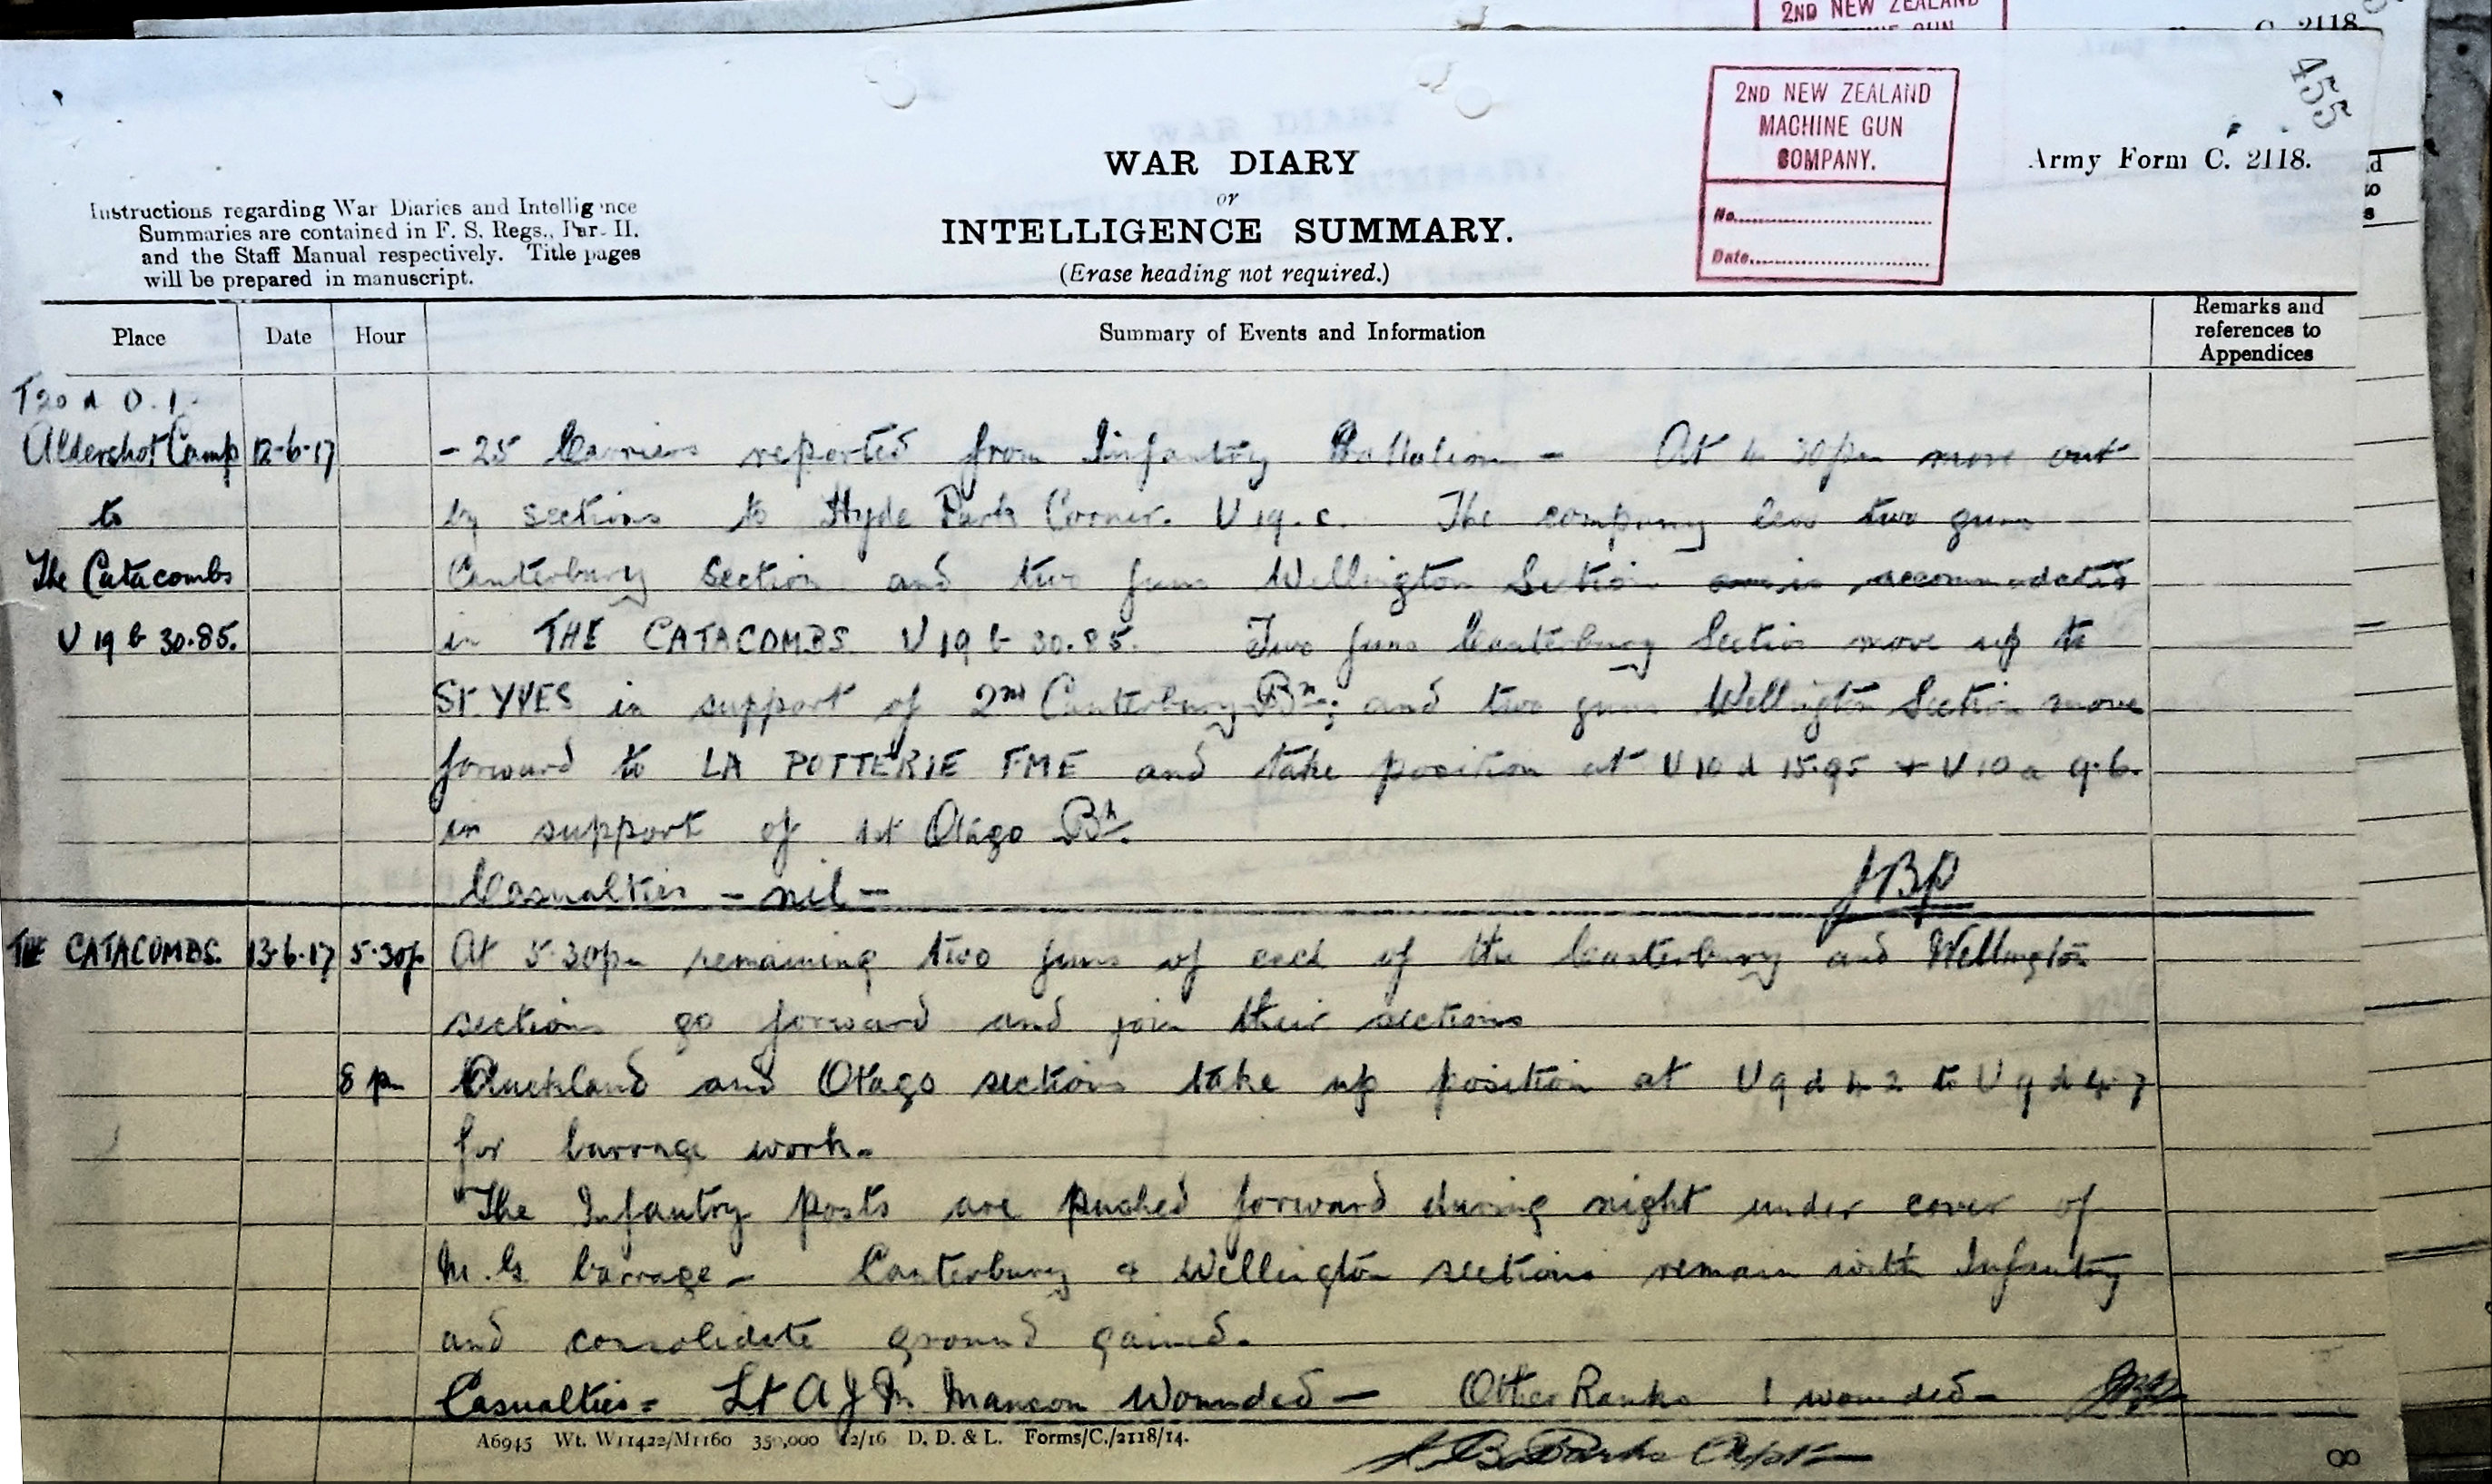 2ND NEW ZEALAND
C. 2118
455
2ND NEW ZEALAND
MACHINE GUN
COMPANY.
No.
Date.
Army Form C. 2118.
WAR DIARY
or
INTELLIGENCE SUMMARY.
(Erase heading not required.)
Instructions regarding War Diaries and Intelligence
Summaries are contained in F. S. Regs., Part II.
and the Staff Manual respectively. Title pages
will be prepared in manuscript.
Place Date Hour Summary of Events and Information Remarks and references to Appendices
T20 d 0.1.
Aldershot Camp 12-6-17 - 25 Carriers reported from Infantry Battalion - At 4 30pm move out
to by sections to Hyde Park Corner. U 19.c. The company less two guns
The Catacombs Canterbury Section and two guns Wellington Section is accommodated
U 19 b 30.85. in THE CATACOMBS U 19 b 30.85. Two guns Canterbury Section move up to
ST. YVES in support of 2nd Canterbury Bn; and two guns Wellington Section move
forward to LA POTTERIE FME and take position at U 10 d 15.95 + U 10 a 9.6.
in support of 1st Otago Bn.
Casualties - nil - JBP
THE CATACOMBS. 13-6-17 5.30p At 5.30pm remaining two guns of each of the Canterbury and Wellington
sections go forward and join their sections
8 pm Auckland and Otago sections take up position at U 9 d 4.2 to U 9 d 4.7
for barrage work.
The Infantry posts are pushed forward during night under cover of
M.G. barrage - Canterbury & Wellington sections remain with Infantry
and consolidate ground gained.
Casualties = Lt A J M Manson Wounded - Other Ranks 1 wounded - JBP
A6945 Wt. W11422/M1160 350,000 12/16 D. D. & L. Forms/C./2118/14.
J B Parks Capt
8